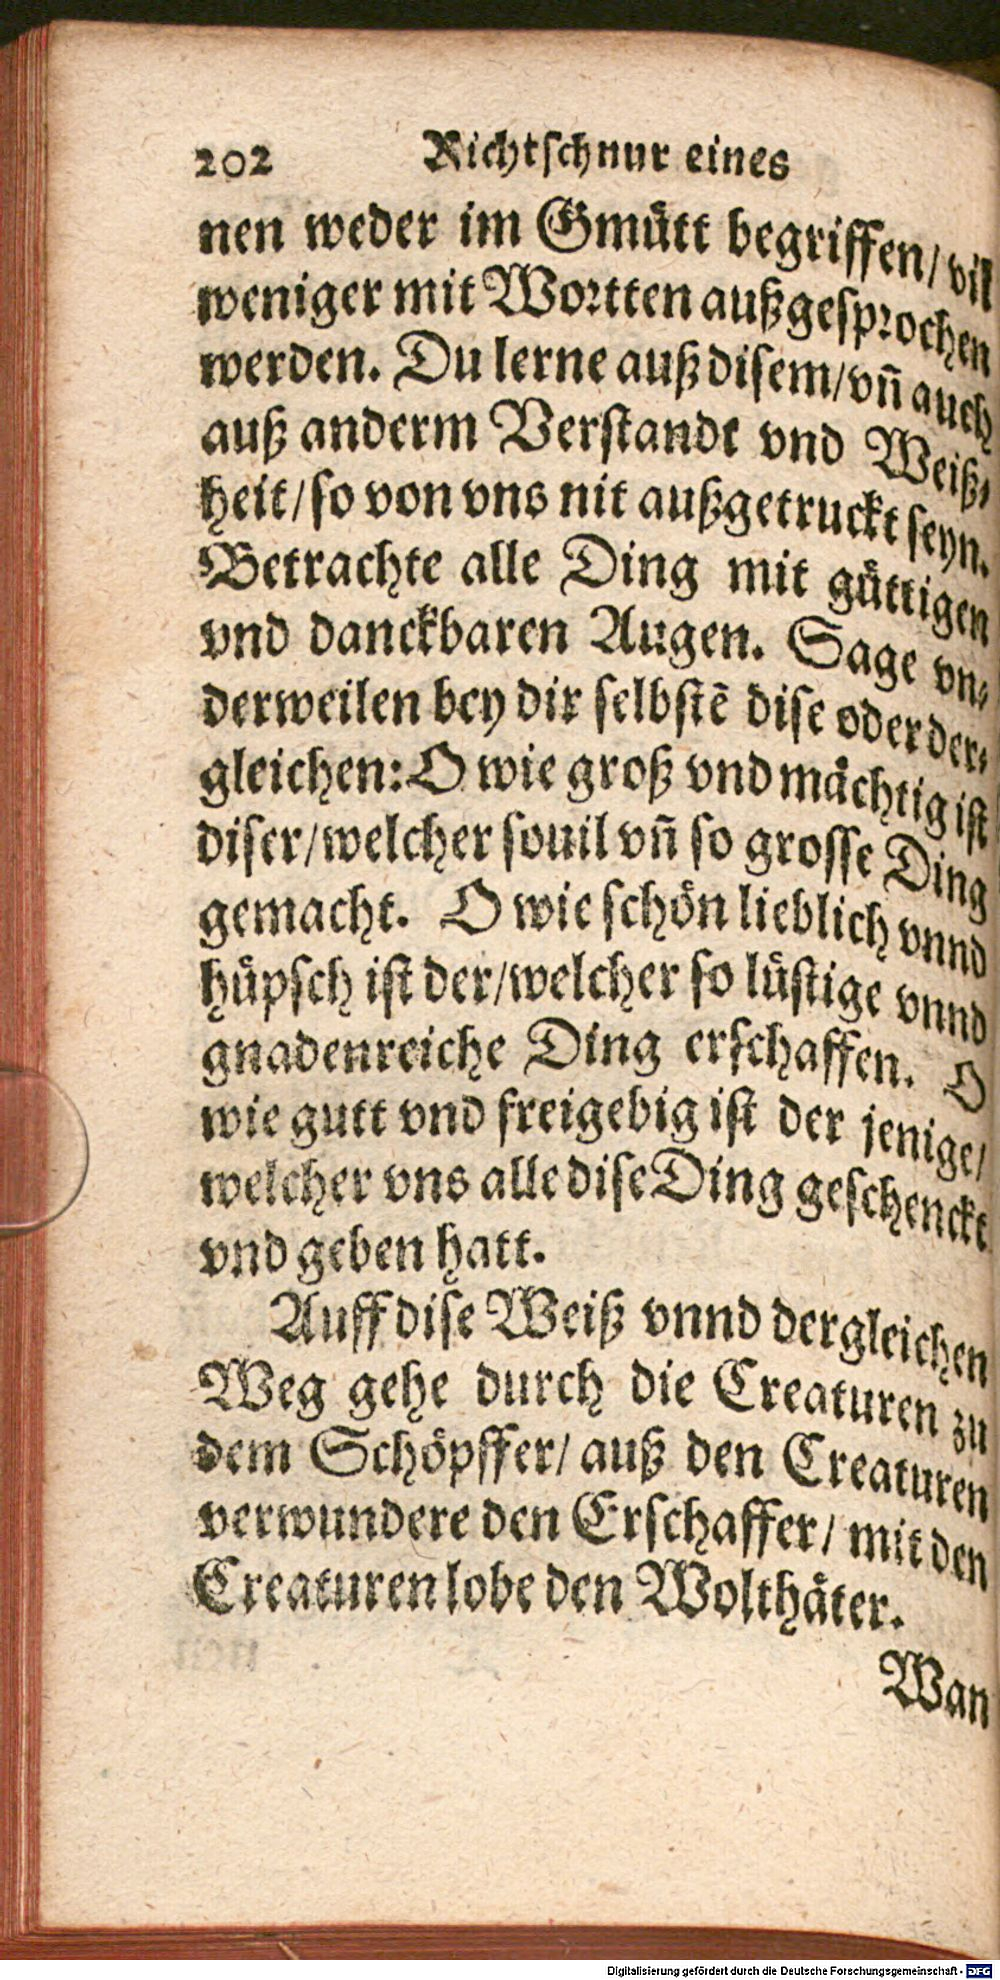 202 Richtschnur eines
nen weder im Gmuͤtt begriffen/ vil
weniger mit Wortten außgesprochen
werden. Du lerne auß disem/ vñ auch
auß anderm Verstande vnd Weiß⸗
heit/ so von vns nit außgetruckt seyn.
Betrachte alle Ding mit guͤttigen
vnd danckbaren Augen. Sage vn⸗
derweilen bey dir selbstē dise oder der⸗
gleichen: O wie groß vnd maͤchtig ist
diser/ welcher souil vñ so grosse Ding
gemacht. O wie schoͤn lieblich vnnd
huͤpsch ist der/ welcher so luͤstige vnnd
gnadenreiche Ding erschaffen. O
wie gutt vnd freigebig ist der jenige/
welcher vns alle dise Ding geschenckt
vnd geben hatt.
Auff dise Weiß vnnd dergleichen
Weg gehe durch die Creaturen zu
dem Schoͤpffer/ auß den Creaturen
verwundere den Erschaffer/ mit den
Creaturen lobe den Wolthaͤter.
Wan
Digitalisierung gefördert durch die Deutsche Forschungsgemeinschaft - DFG